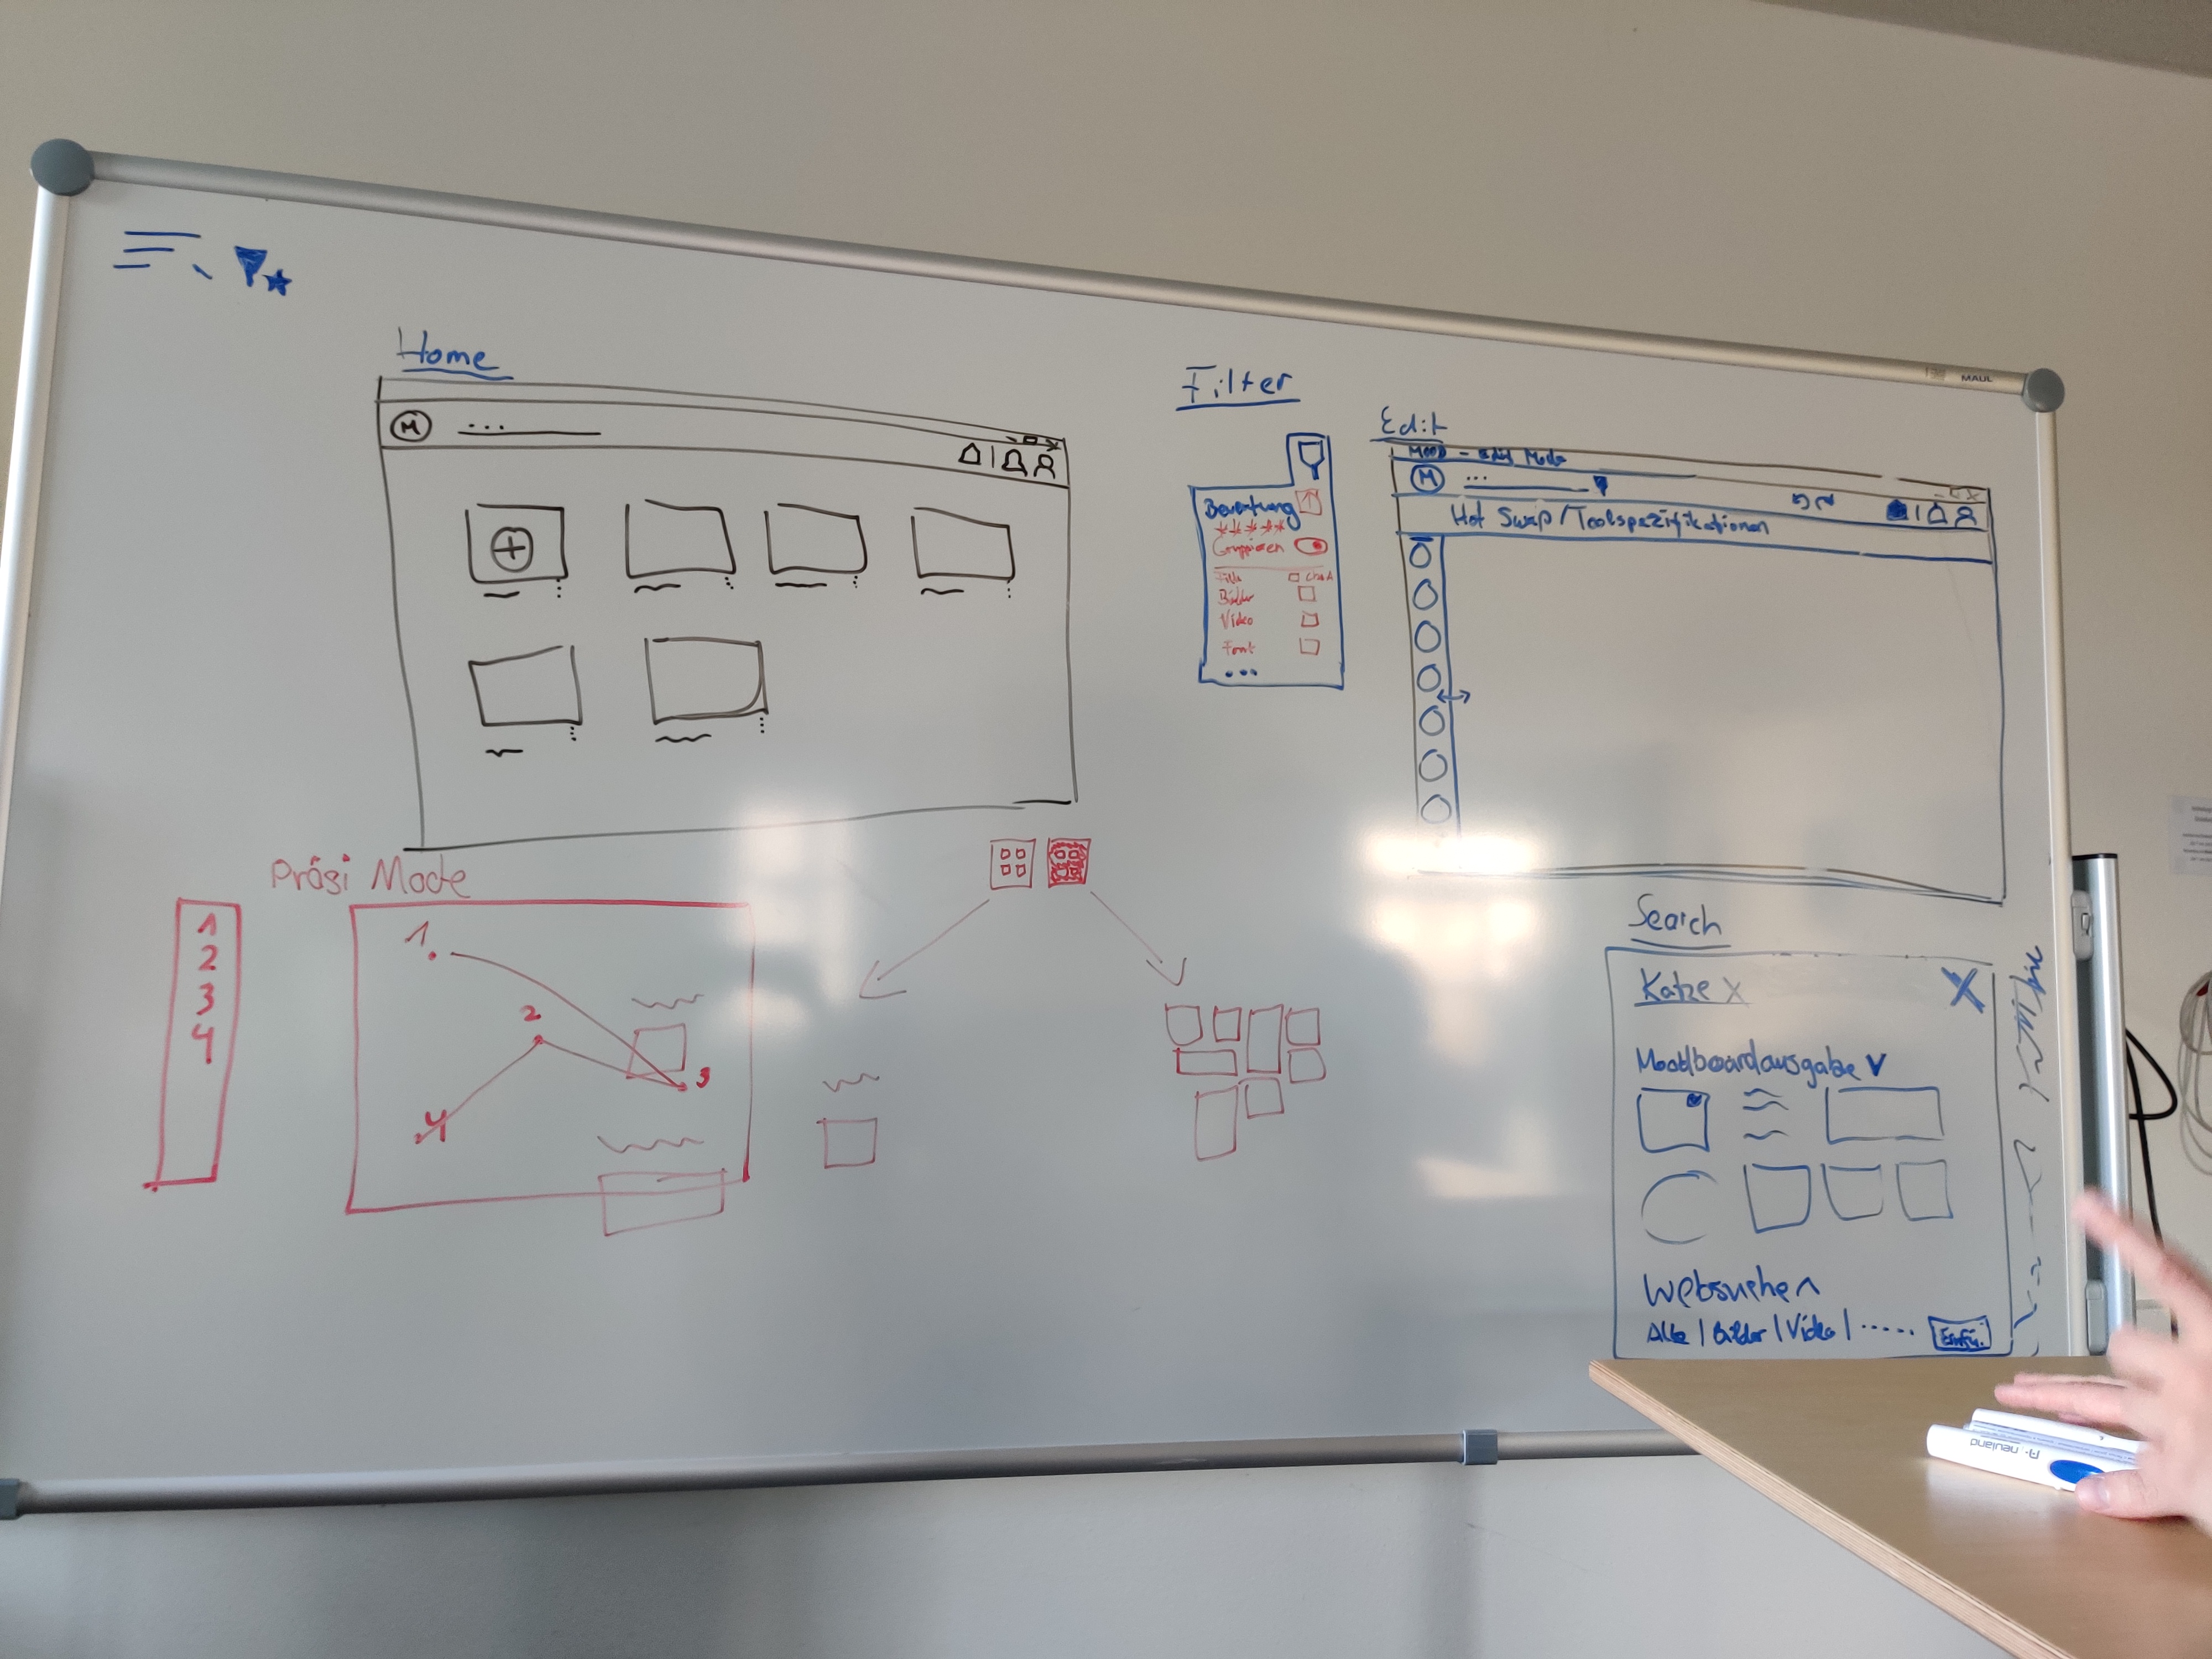 Home
M
...
Filter
Bewertung
*****
Gruppieren
Bilder
Video
Font
...
Edit
Mood - Edit Mode
M
...
Hot Swap/Toolspezifikationen
MAUL
Präsi Mode
1
2
3
4
1
2
3
4
Search
Katze X
X
Moodboardausgabe V
Websuchen
Alle | Bilder | Video | ......
Einfü.
neuland